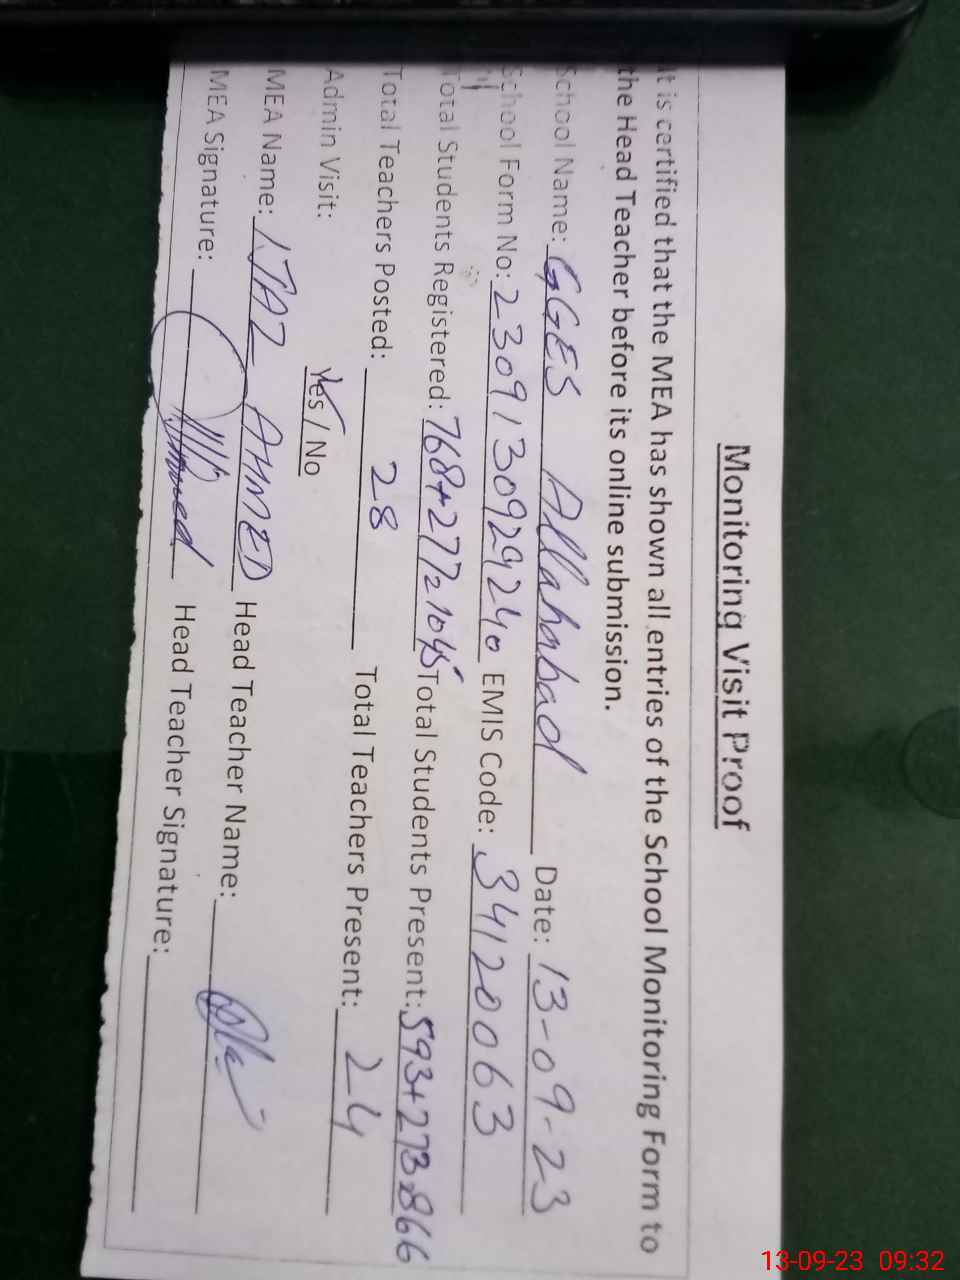 Monitoring Visit Proof
It is certified that the MEA has shown all entries of the School Monitoring Form to
the Head Teacher before its online submission.
School Name: GGES Allahabad Date: 13-09-23
School Form No: 2309130929240 EMIS Code: 34120063
Total Students Registered: 768+277=1045 Total Students Present: 593+273=866
Total Teachers Posted: 28 Total Teachers Present: 24
Admin Visit: Yes / No
MEA Name: IJAZ AHMED Head Teacher Name:
MEA Signature: Head Teacher Signature:
13-09-23 09:32